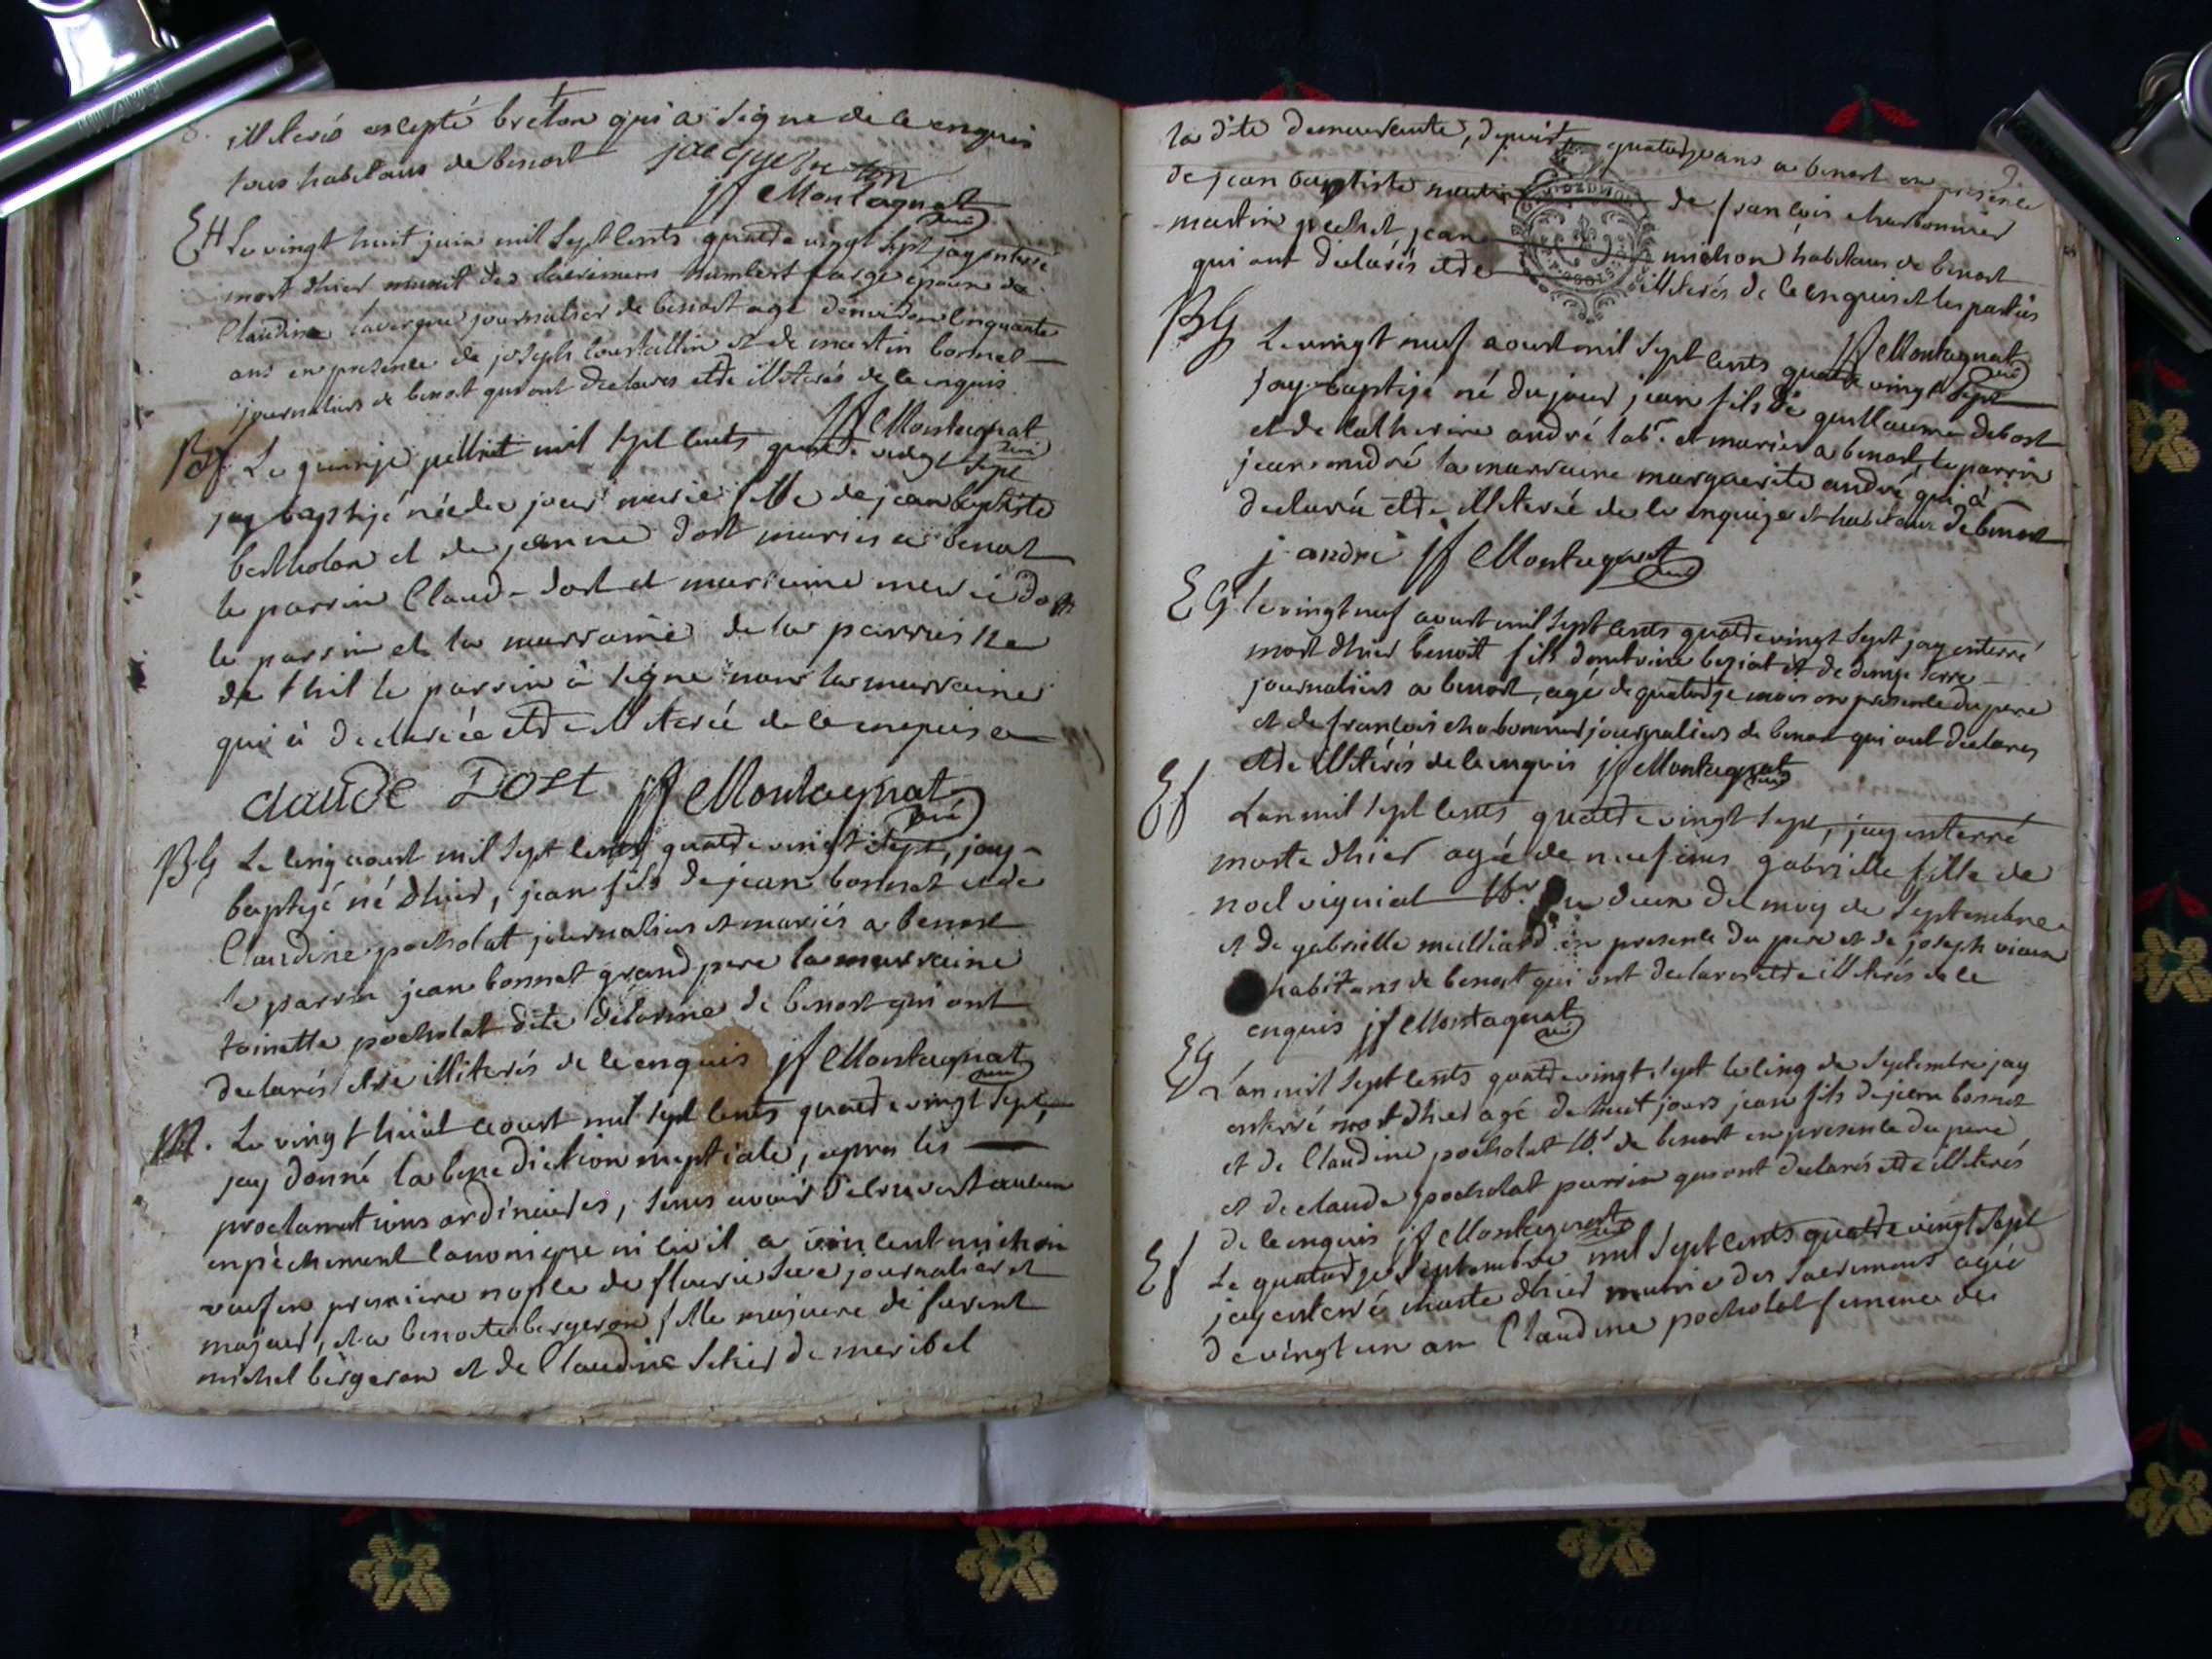 illiterés excepté breton qui a signe de ce enquis
tous habitans de benost jacque breton
jf Montagnat curé
EH Le vingt huit juin mil sept cents quatre vingt sept jay enterré
mort d'hier munit des sacremens humbert farge epoux de
Claudine lavergne journalier de benost agé denviron cinquante
ans en presence de joseph coustallin et de martin bonnet
journaliers de benost qui ont declares etre illiterés de ce enquis
jf Montagnat curé
Bf Le quinze juillet mil sept cents quatre vingt sept
jay baptizé née du jour marie fille de jean baptiste
bertholon et de jeanne dost mariés a benost
le parrin Claude dost et marraine marie dost
le parrin et la marraine de la parroisse
de thil le parrin à signe non la marraine
qui à declarée etre illiterée de ce enquise
claude Dost jf Montagnat curé
BG Le cinq aoust mil sept cents quatre vingt sept, jay
baptizé né d'hier, jean fils de jean bonnet et de
Claudine pocholat journaliers et mariés a benost
le parrin jean bonnet grand pere la marraine
toinette pocholat dite delorme de benost qui ont
declarés etre illiterés de ce enquis jf Montagnat curé
M. Le vingt huit aoust mil sept cents quatre vingt sept,
jay donné la benediction nuptiale, apres les
proclamations ordinaires, sans avoir decouvert aucun
enpechement canonique ni civil a vincent michon
veuf en premiere nopce de fleurie journalier et
majeur, et a benoite bergeron fille majeure de furent
michel bergeron et de Claudine de meribel
la dite demeurante, depuis quatorze ans a benost en presence
de jean baptiste martin de françois charbonnier
martin pechet, jean michon habitans de benost
qui ont declarés etre illiterés de ce enquis et les parties
jf Montagnat curé
BG Le vingt neuf aoust mil sept cents quatre vingt sept
jay baptizé né du jour jean fils de guillaume debost
et de catherine andré labr. et mariés a benost, le parrin
jean andré la marraine marguerite andré qui à
declarée etre illiterée de ce enquize et habitans de benost
j. andré jf Montagnat curé
EG le vingt neuf aoust mil sept cents quatre vingt sept jay enterré
mort d'hier benoit fils dantoine beziat et de denize serre
journaliers a benost, agé de quatorze mois en presence du pere
et de françois chabonnier journaliers de benost qui ont declares
etre illiterés de ce enquis jf Montagnat curé
Ef L'an mil sept cents quatre vingt sept, jay enterré
morte d'hier agée de neuf ans gabrielle fille de
noel vignial lbr. deux du moy de septembre
et de gabrielle milliard en presence du pere et de joseph
habitans de benost qui ont declares etre illiterés de ce
enquis jf Montagnat curé
EG L'an mil sept cents quatre vingt sept le cinq de septembre jay
enterré mort d'hier agé de huit jours jean fils de jean bonnet
et de Claudine pocholat lbr. de benost en presence du pere
et de claude pocholat parrin qui ont declarés etre illiterés
de ce enquis jf Montagnat curé
Ef Le quatorze septembre mil sept cents quatre vingt sept
jay enterré morte d'hier munie des sacremens agée
de vingt un an Claudine pocholat femme de